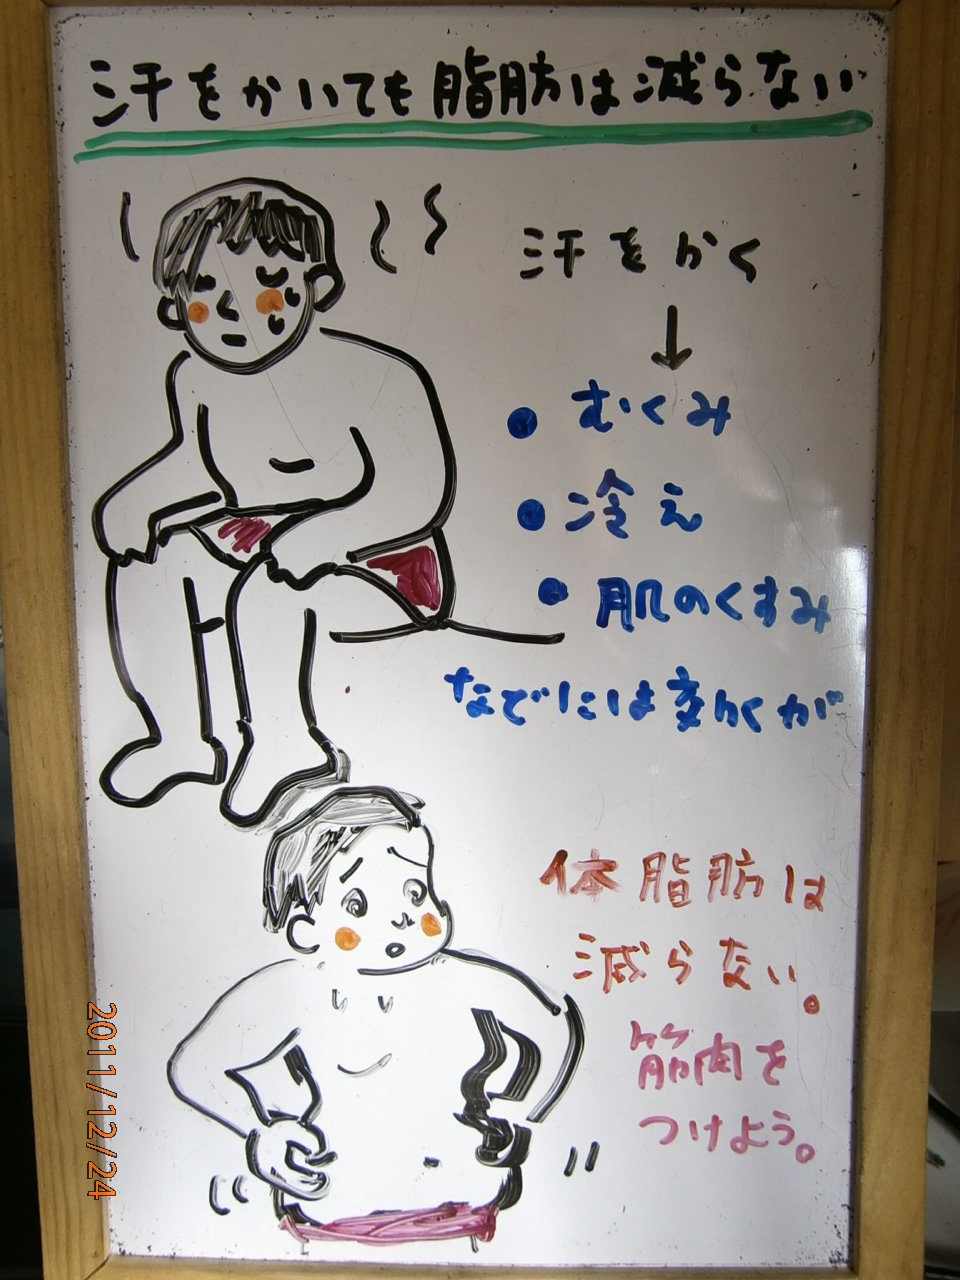 汗をかいても脂肪は減らない
汗をかく
↓
● むくみ
● 冷え
● 肌のくすみ
などには効くが
体脂肪は
減らない。
筋肉を
つけよう。
2011/12/24